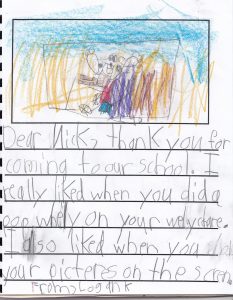 Dear Nick, thank you for
coming to our school. I
really liked when you did a
on your
I also liked when you
your picteres on the
From: Logan k